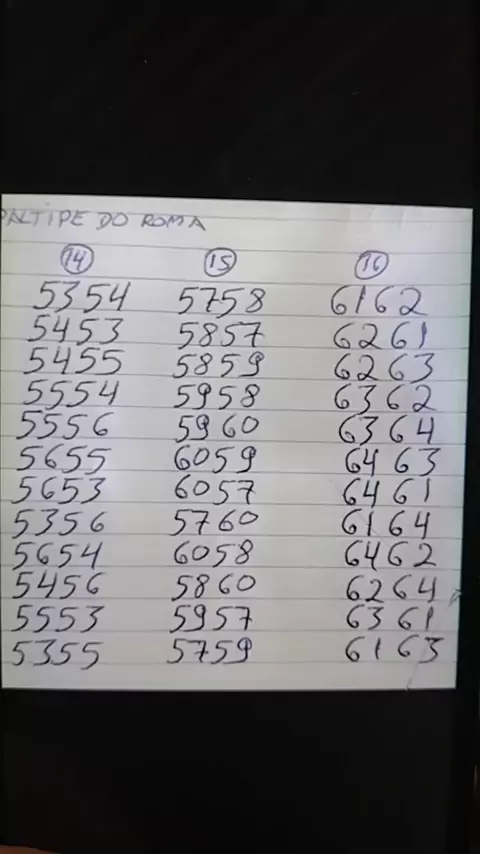 PALTIPE DO ROMA
14 15 16
5354 5758 6162
5453 5857 6261
5455 5859 6263
5554 5958 6362
5556 5960 6364
5655 6059 6463
5653 6057 6461
5356 5760 6164
5654 6058 6462
5456 5860 6264
5553 5957 6361
5355 5759 6163